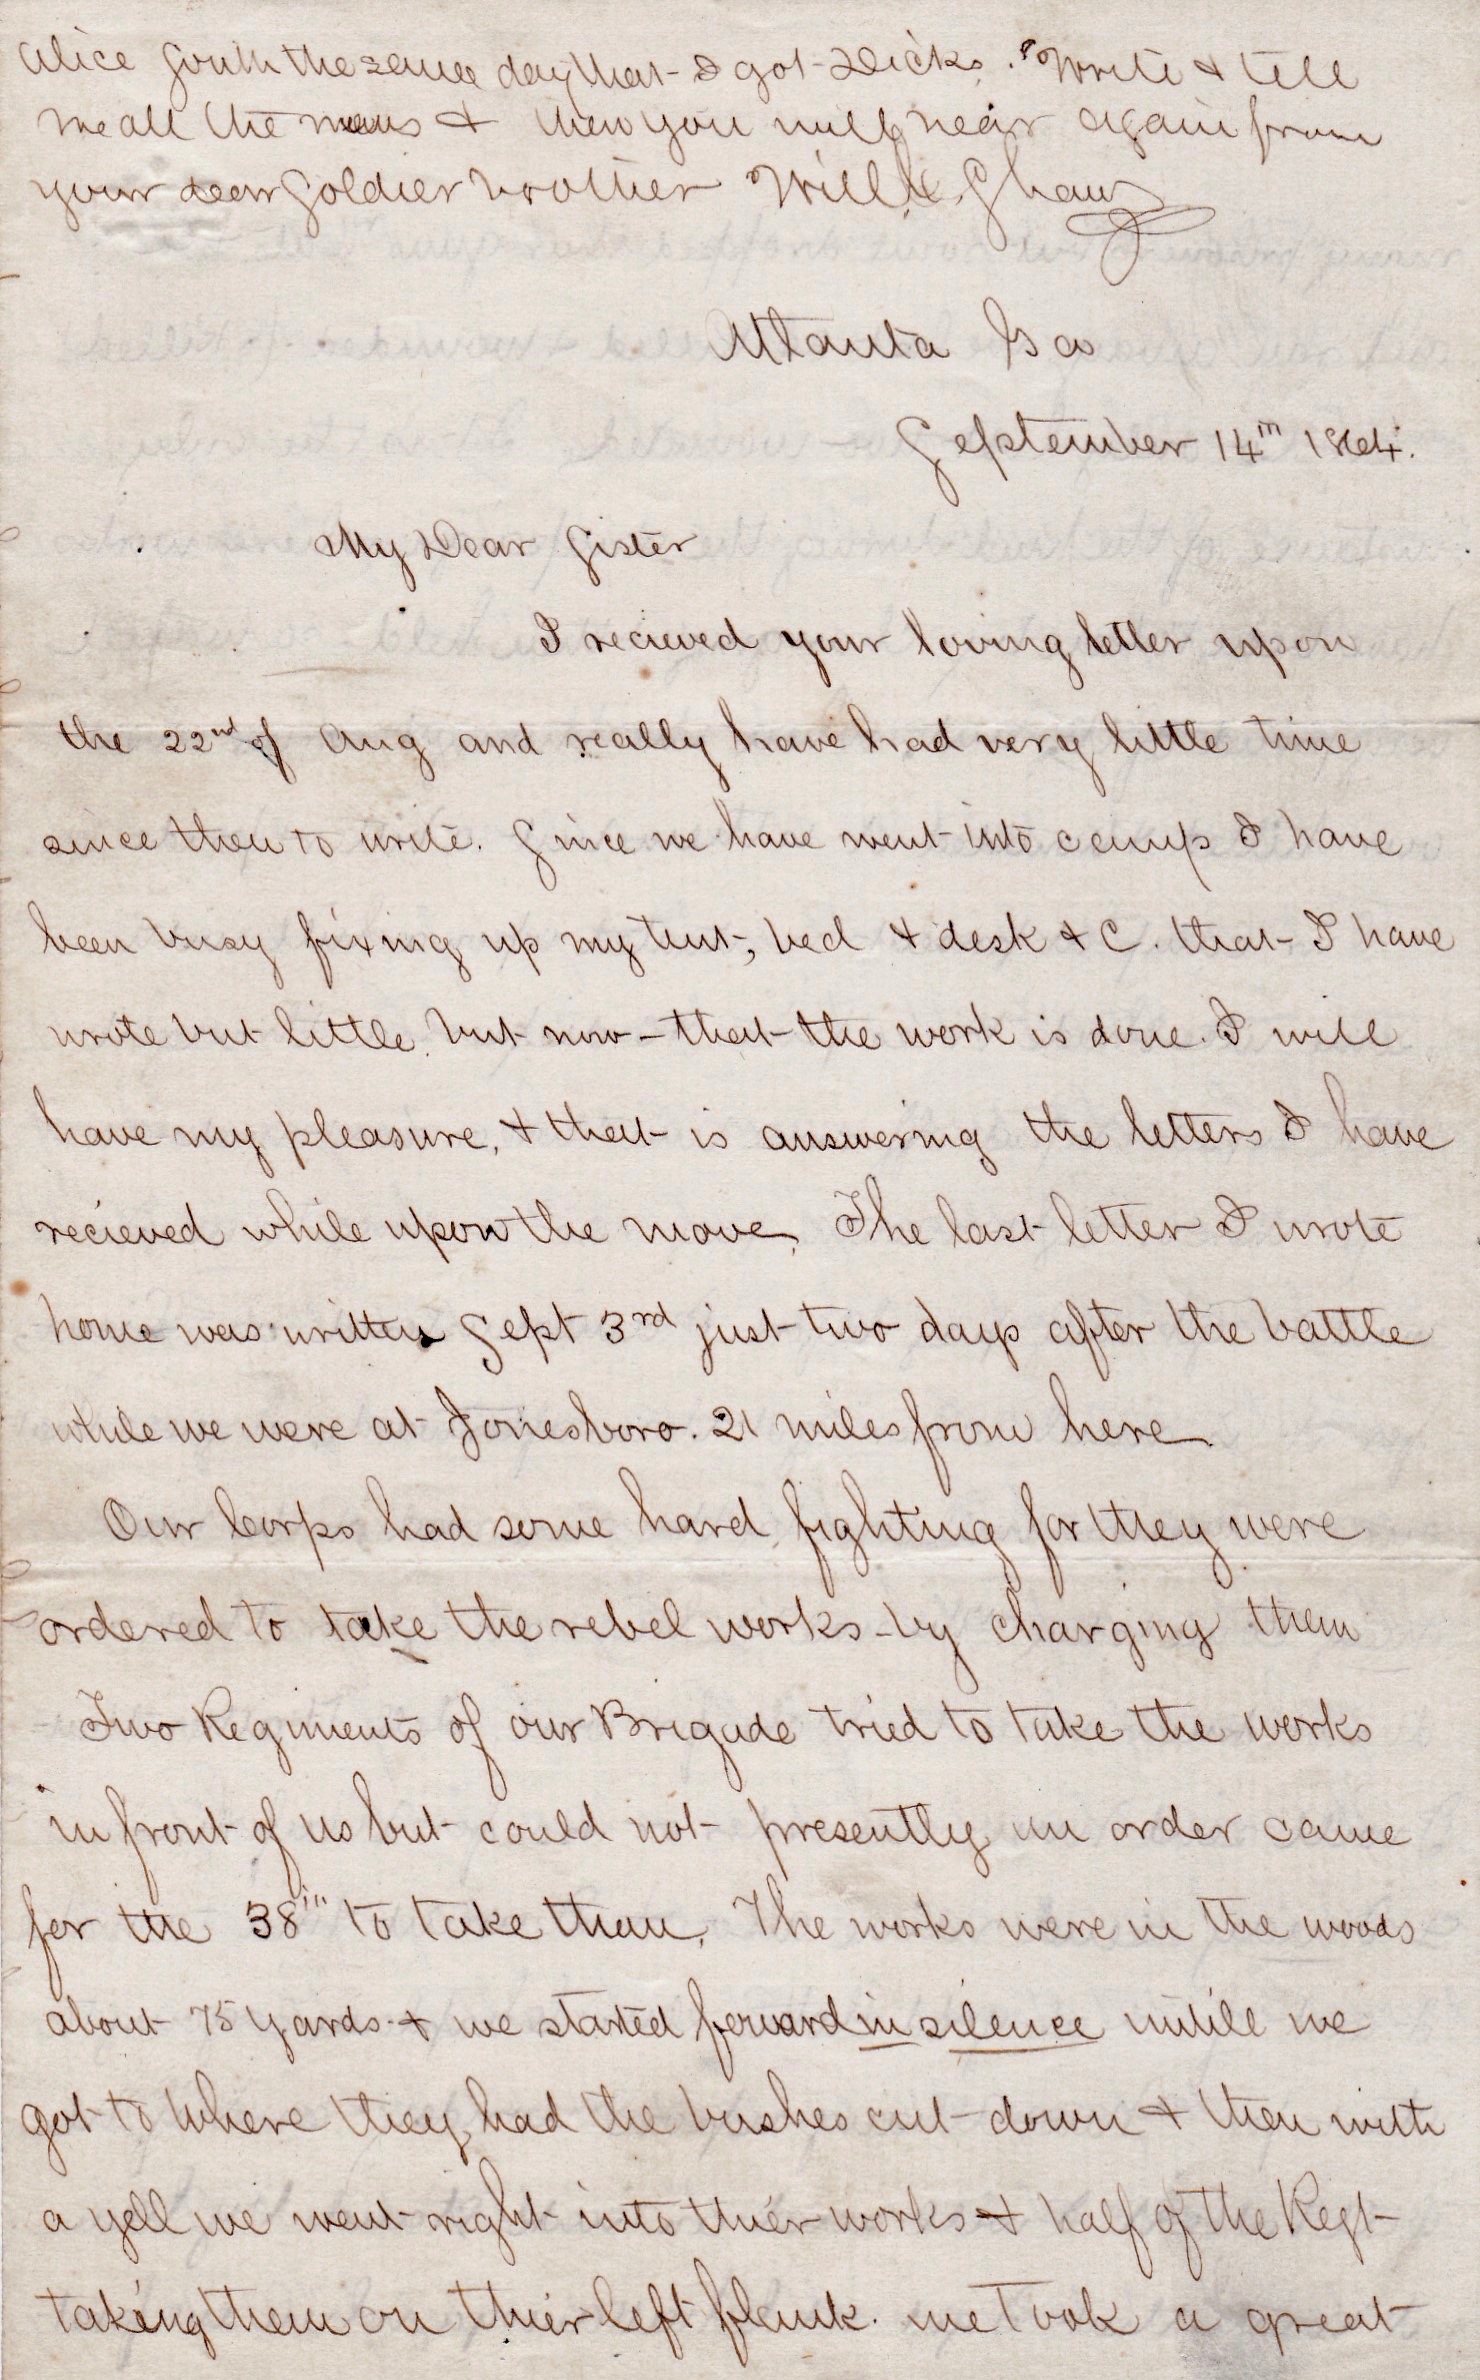 Alice South the same day that I got Dicks. Write & tell
me all the news & then you will hear again from
your dear Soldier brother Will. Shaw
Atlanta Ga
September 14th 1864.
My Dear Sister
I recieved your loving letter upon
the 22nd of Aug and really have had very little time
since then to write. Since we have went into camp I have
been busy fixing up my tent, bed & desk & C. that I have
wrote but little. but now that the work is done. I will
have my pleasure, & that is answering the letters I have
recieved while upon the move. The last letter I wrote
home was written Sept 3rd just two days after the battle
while we were at Jonesboro. 21 miles from here
Our Corps had some hard fighting for they were
ordered to take the rebel works by charging them
Two Regiments of our Brigade tried to take the works
in front of us but could not presently an order came
for the 38th to take them. The works were in the woods
about 75 yards & we started forward in silence untill we
got to where they had the bushes cut down & then with
a yell we went right into thier works & half of the Regt
taking them on thier left flank. we took a great